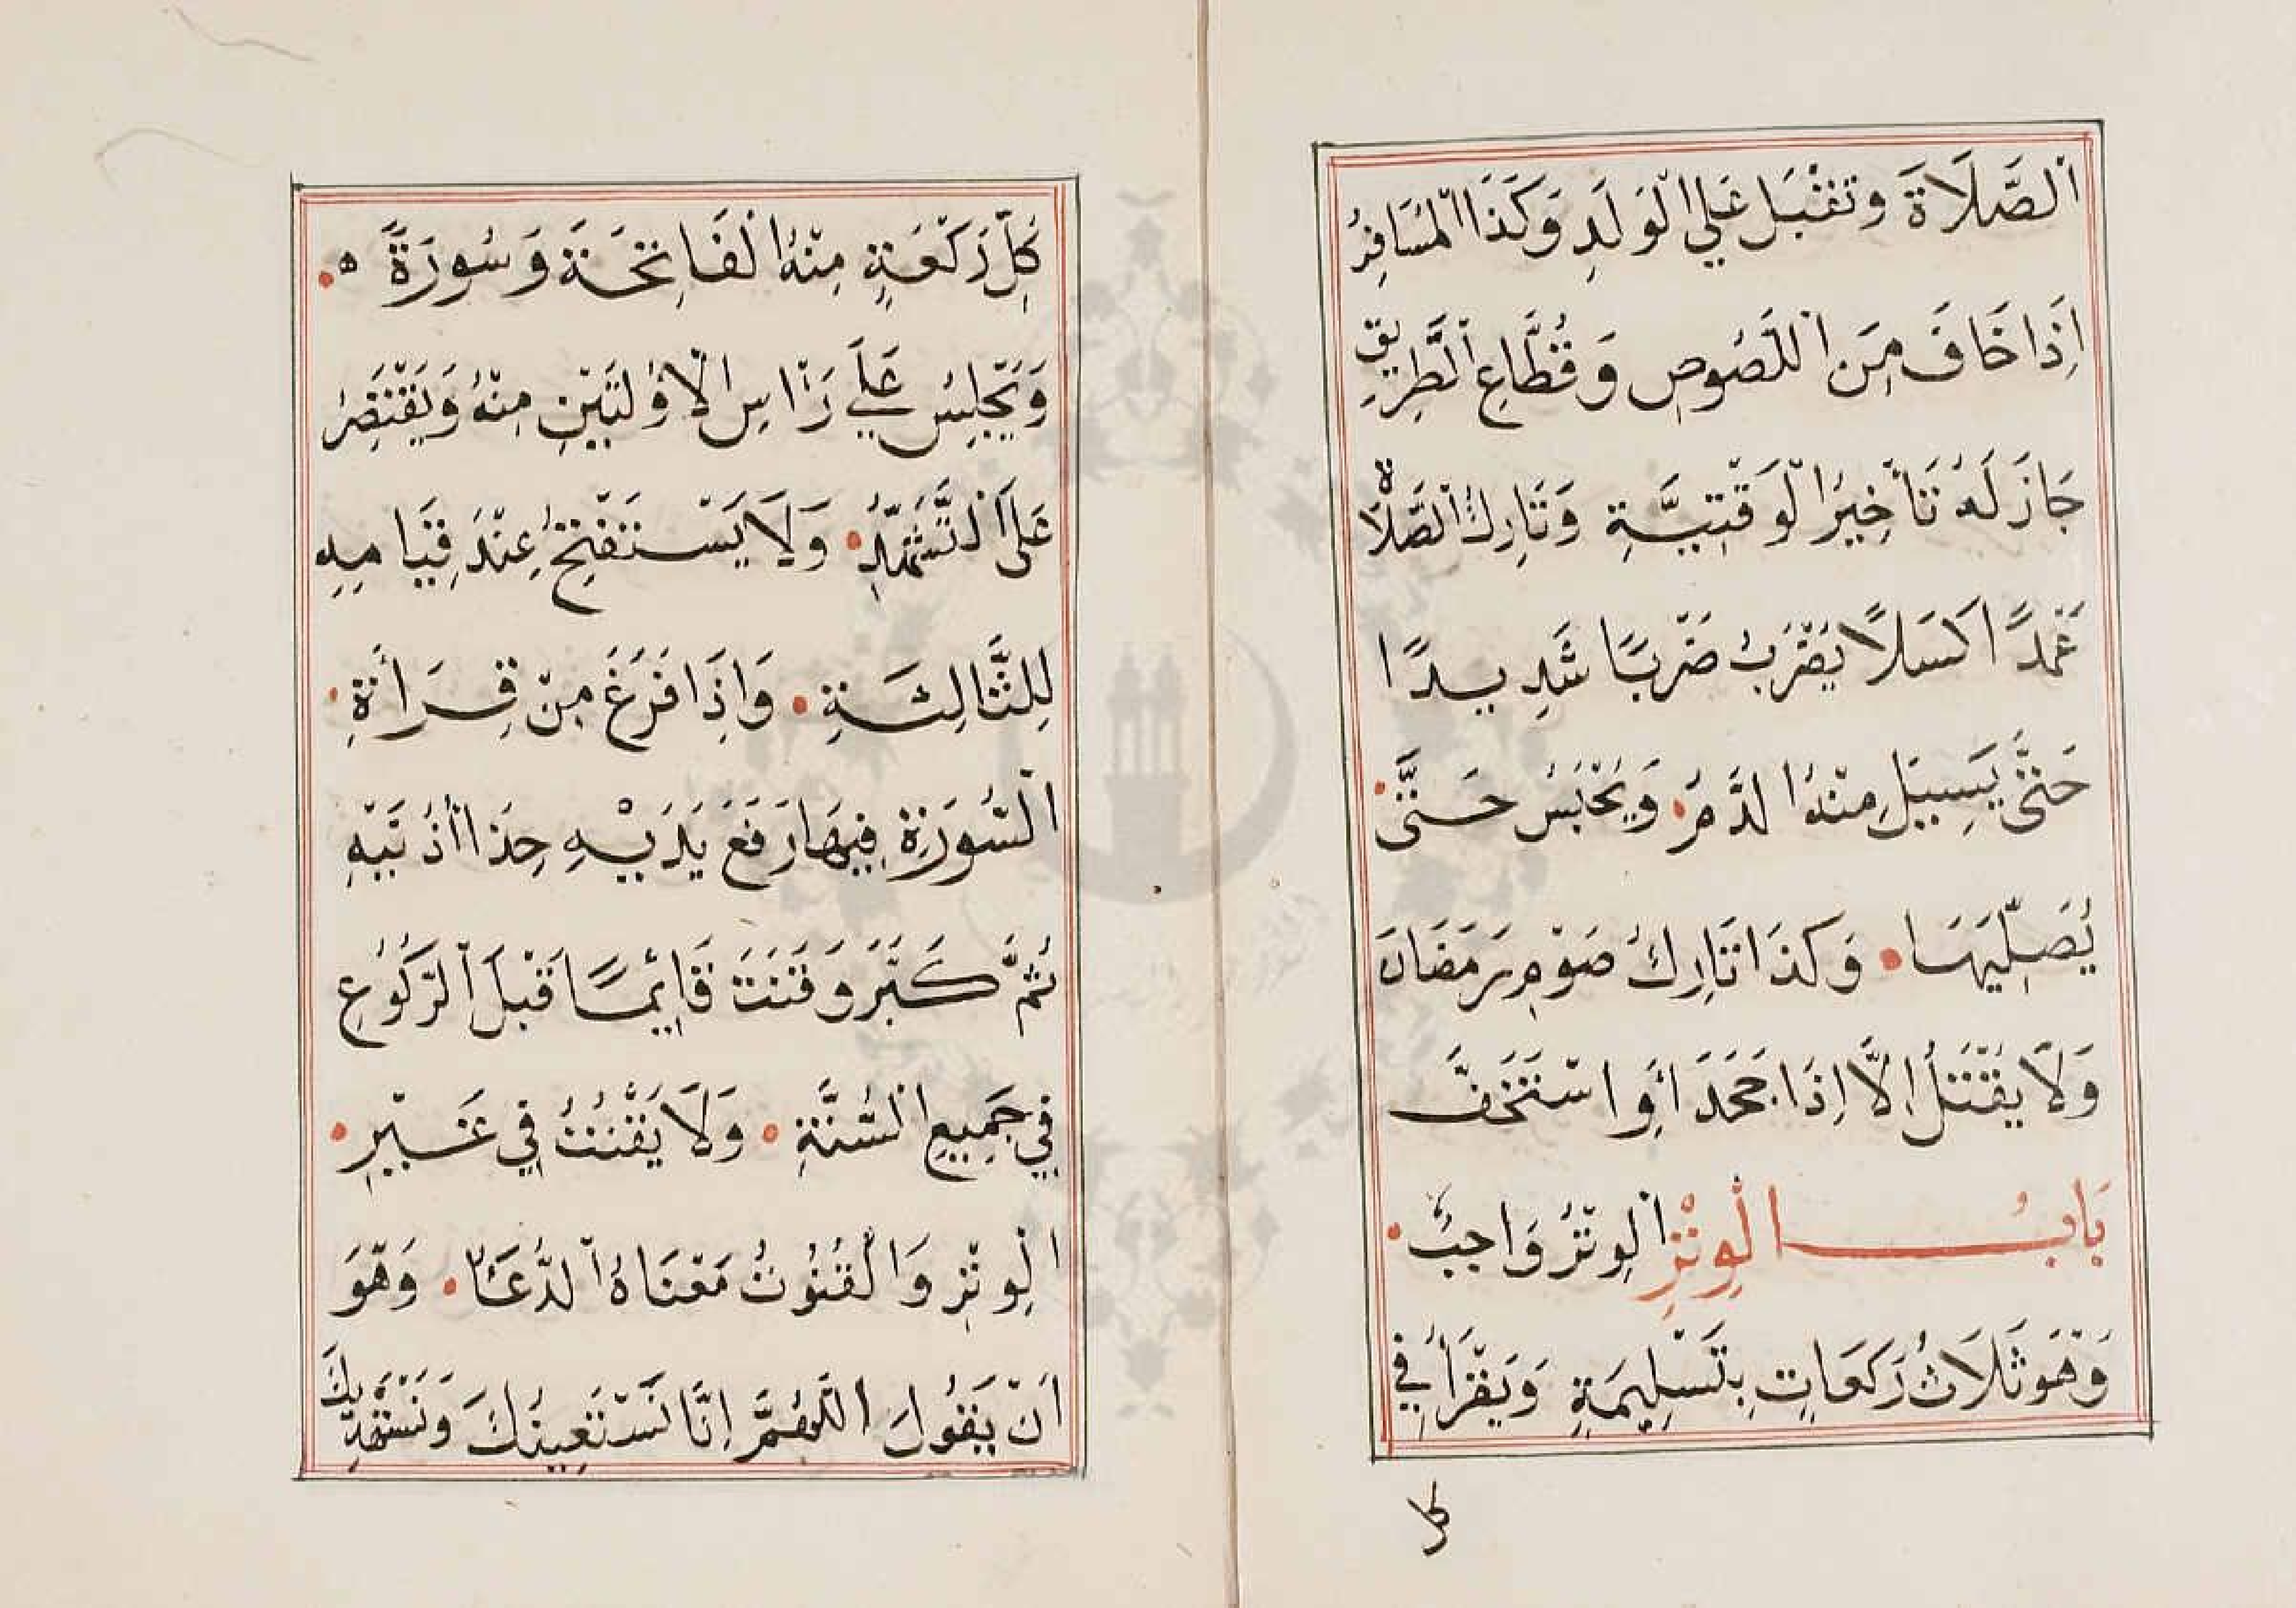 اَلصَّلَاةَ وَتُقْبِلُ عَلَى الْوَلَدِ وَكَذَا الْمُسَافِرُ
اِذَا خَافَ مِنَ اللُّصُوصِ وَقُطَّاعِ الطَّرِيقِ
جَازَ لَهُ تَأْخِيرُ الْوَقْتِيَّةِ وَتَارِكُ الصَّلَاةِ
عَمْدًا كَسَلًا يُضْرَبُ ضَرْبًا شَدِيدًا
حَتَّى يَسِيلَ مِنْهُ الدَّمُ وَيُحْبَسُ حَتَّى
يُصَلِّيَهَا وَكَذَا تَارِكُ صَوْمِ رَمَضَانَ
وَلَا يُقْتَلُ اِلَّا اِذَا جَحَدَ أَوِ اسْتَخَفَّ
بَابُ الْوِتْرِ الْوِتْرُ وَاجِبٌ
وَهُوَ ثَلَاثُ رَكَعَاتٍ بِتَسْلِيمَةٍ وَيَقْرَأُ فِي
كل
كُلِّ رَكْعَةٍ مِنْهُ الْفَاتِحَةَ وَسُورَةً ه
وَيَجْلِسُ عَلَى رَأْسِ الْاُولَيَيْنِ مِنْهُ وَيَقْتَصِرُ
عَلَى التَّشَهُّدِ وَلَا يَسْتَفْتِحُ عِنْدَ قِيَامِهِ
لِلثَّالِثَةِ وَاِذَا فَرَغَ مِنْ قِرَأَةِ
السُّورَةِ فِيهَا رَفَعَ يَدَيْهِ حِذَا أُذُنَيْهِ
ثُمَّ كَبَّرَ وَقَنَتَ قَائِمًا قَبْلَ الرُّكُوعِ
فِي جَمِيعِ السَّنَةِ وَلَا يَقْنُتُ فِي غَيْرِ
الْوِتْرِ وَالْقُنُوتُ مَعْنَاهُ الدُّعَاءُ وَهُوَ
اَنْ يَقُولَ اللَّهُمَّ اِنَّا نَسْتَعِينُكَ وَنَسْتَهْدِيكَ